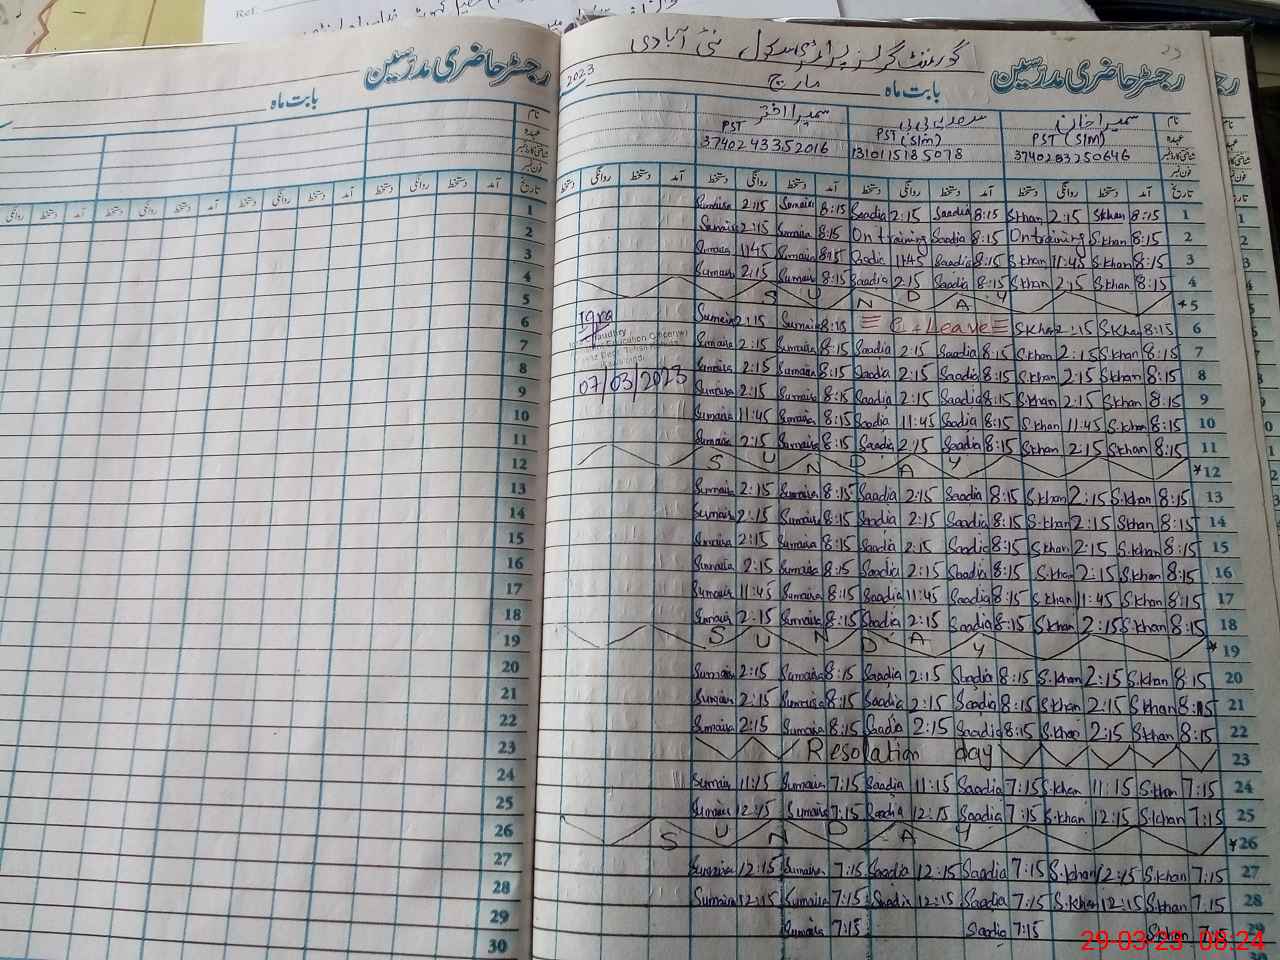 Ref.
رجسٹر حاضری مدرسین
بابت ماہ
نام
عہدہ
شناختی کارڈ نمبر
فون نمبر
تاریخ آمد دستخط روانگی دستخط آمد دستخط روانگی دستخط آمد دستخط روانگی دستخط آمد دستخط روانگی
1
2
3
4
5
6
7
8
9
10
11
12
13
14
15
16
17
18
19
20
21
22
23
24
25
26
27
28
29
30
گورنمنٹ گرلز پرائمری سکول نئی آبادی
رجسٹر حاضری مدرسین
23
بابت ماہ مارچ 2023
نام سمیرا خان سعدیہ بی بی سمیرا اختر
عہدہ PST (S/m) PST (S/m) PST
شناختی کارڈ نمبر 1310115185078 3740243352016
فون نمبر
تاریخ آمد دستخط روانگی دستخط آمد دستخط روانگی دستخط آمد دستخط روانگی دستخط آمد دستخط روانگی دستخط
Sumaira 2:15 Sumaira 8:15 Saadia 2:15 Saadia 8:15 S.khan 2:15 S.khan 8:15 1
Sumaira 2:15 Sumaira 8:15 On training Saadia 8:15 On training S.khan 8:15 2
Sumaira 11:45 Sumaira 8:15 Saadia 11:45 Saadia 8:15 S.khan 11:45 S.khan 8:15 3
Sumaira 2:15 Sumaira 8:15 Saadia 2:15 Saadia 8:15 S.khan 2:15 S.khan 8:15 4
S U N D A Y *5
Iqra Sumaira 2:15 Sumaira 8:15 Leave S.khan 2:15 S.khan 8:15 6
Sumaira 2:15 Sumaira 8:15 Saadia 2:15 Saadia 8:15 S.khan 2:15 S.khan 8:15 7
07/03/2023 Sumaira 2:15 Sumaira 8:15 Saadia 2:15 Saadia 8:15 S.khan 2:15 S.khan 8:15 8
Sumaira 2:15 Sumaira 8:15 Saadia 2:15 Saadia 8:15 S.khan 2:15 S.khan 8:15 9
Sumaira 11:45 Sumaira 8:15 Saadia 11:45 Saadia 8:15 S.khan 11:45 S.khan 8:15 10
Sumaira 2:15 Sumaira 8:15 Saadia 2:15 Saadia 8:15 S.khan 2:15 S.khan 8:15 11
S U N D A Y *12
Sumaira 2:15 Sumaira 8:15 Saadia 2:15 Saadia 8:15 S.khan 2:15 S.khan 8:15 13
Sumaira 2:15 Sumaira 8:15 Saadia 2:15 Saadia 8:15 S.khan 2:15 S.khan 8:15 14
Sumaira 2:15 Sumaira 8:15 Saadia 2:15 Saadia 8:15 S.khan 2:15 S.khan 8:15 15
Sumaira 2:15 Sumaira 8:15 Saadia 2:15 Saadia 8:15 S.khan 2:15 S.khan 8:15 16
Sumaira 11:45 Sumaira 8:15 Saadia 11:45 Saadia 8:15 S.khan 11:45 S.khan 8:15 17
Sumaira 2:15 Sumaira 8:15 Saadia 2:15 Saadia 8:15 S.khan 2:15 S.khan 8:15 18
S U N D A Y *19
Sumaira 2:15 Sumaira 8:15 Saadia 2:15 Saadia 8:15 S.khan 2:15 S.khan 8:15 20
Sumaira 2:15 Sumaira 8:15 Saadia 2:15 Saadia 8:15 S.khan 2:15 S.khan 8:15 21
Sumaira 2:15 Sumaira 8:15 Saadia 2:15 Saadia 8:15 S.khan 2:15 S.khan 8:15 22
Resolation day 23
Sumaira 11:15 Sumaira 7:15 Saadia 11:15 Saadia 7:15 S.khan 11:15 S.khan 7:15 24
Sumaira 12:15 Sumaira 7:15 Saadia 12:15 Saadia 7:15 S.khan 12:15 S.khan 7:15 25
S U N D A Y *26
Sumaira 12:15 Sumaira 7:15 Saadia 12:15 Saadia 7:15 S.khan 12:15 S.khan 7:15 27
Sumaira 12:15 Sumaira 7:15 Saadia 12:15 Saadia 7:15 S.khan 12:15 S.khan 7:15 28
Sumaira 7:15 Saadia 7:15 S.khan 7:15 29
29-03-23 08:24